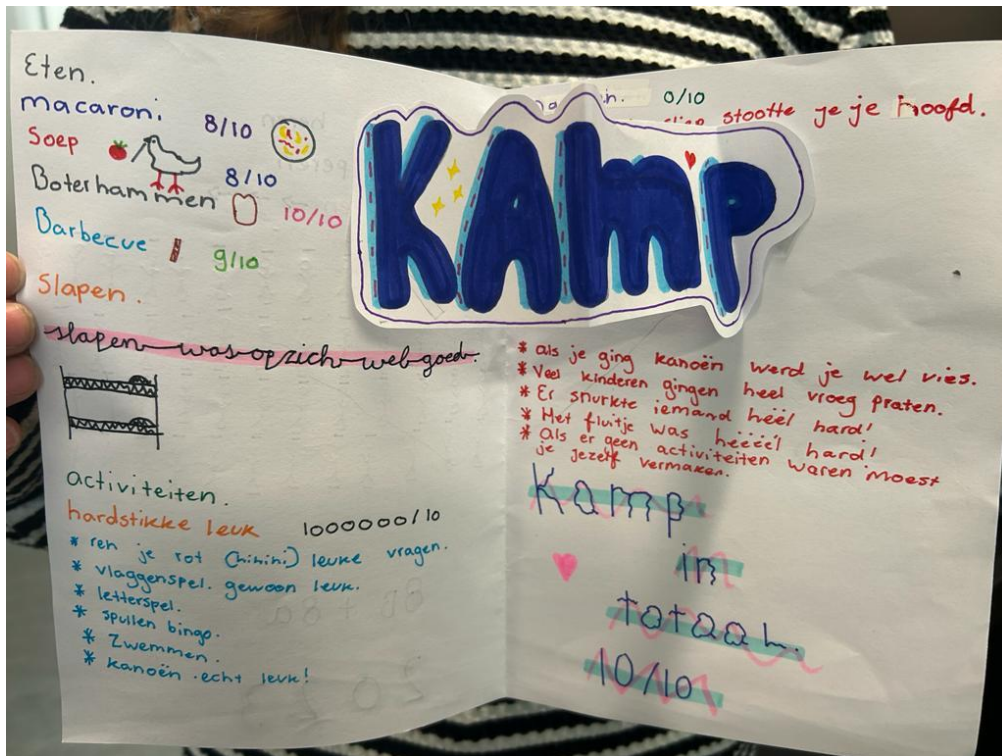 Eten.
macaroni 8/10
Soep 8/10
Boterhammen 10/10
Barbecue 9/10
Slapen.
slapen was opzich wel goed.
activiteiten.
hardstikke leuk 1000000/10
* ren je rot (hihihi) leuke vragen.
* vlaggenspel. gewoon leuk.
* letterspel.
* spullen bingo.
* Zwemmen.
* kanoën echt leuk!
KAmp
0/10
stootte je je hoofd.
* als je ging kanoën werd je wel vies.
* Veel kinderen gingen heel vroeg praten.
* Er snurkte iemand héél hard!
* Het fluitje was héééél hard!
* Als er geen activiteiten waren moest
je jezelf vermaken.
Kamp
in
totaal.
10/10